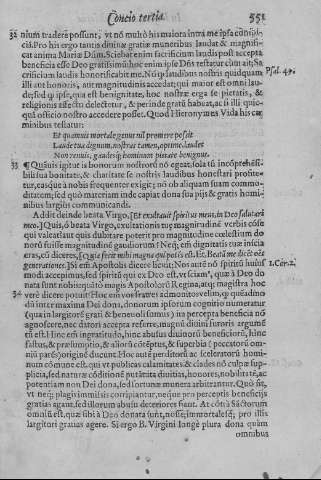 Concio tertia. 551
32 nium tradere possunt, vt nõ multò his maiora intra me ipsa conspi-
ciã. Pro his ergo tantis diuinæ gratiæ muneribus laudat & magnifi-
cat anima Mariæ Dñm. Sciebat enim sacrificium laudis post accepta
beneficia esse Deo gratissimũ: hoc enim ipse Dñs testatur cùm ait; Sa
crificium laudis honorificabit me. Nõ quòd laus nostris quidquam Psal. 49.
illi aut honoris, aut magnitudinis accedat; qui maior est omni lau-
de; sed quòd ipse, qui est benignitate, hoc nostræ erga se pietatis, &
religionis affectu delectetur, & perinde gratũ habeat, ac si illi quic-
quã officio nostro accedere posset. Quod Hieronymus Vida his car
minibus testatur:
Et quamuis mortale genus nil promere possit
Laude tua dignum, nostras tamen, optime, laudes
Non renuis, gaudesq; hominum pietate benignus.
33 ¶ Quãuis igitur is bonorum nostrorũ nõ egeat, sola tñ incõprehẽsi-
bili sua bonitate, & charitate se nostris laudibus honestari profite-
tur, easque à nobis frequenter exigit; nõ ob aliquam suam commo-
ditatem; sed quò materiam inde capiat dona sua pijs & gratis homi-
nibus largiùs communicandi.
Addit deinde beata Virgo, [Et exultauit spiritus meus, in Deo salutari
meo.] Quis, ô beata Virgo, exultationis tuę magnitudinẽ verbis cõse
qui valeat? aut quis dubitare poterit pro magnitudine cælestium do
norũ fuisse magnitudinẽ gaudiorum? Neq; em̃ dignitatis tuæ inscia
eras, cũ diceres, [Quia fecit mihi magna qui potẽs est. Itẽ. Beatã me dicẽt oẽs
generationes.] Si em̃ Apostolis dicere licuit; Nos autẽ nõ spiritũ huius 1. Cor. 2.
mũdi accepimus, sed spiritũ qui ex Deo est, vt sciam', quæ à Deo do
nata sunt nobis: quãtò magis Apostolorũ Regina, atq; magistra hoc
34 verè dicere potuit? Hoc em̃ vos fratres admonitos velim, quẽadmo
dũ inter maxima Dei dona, donorum ipsorum cognitio numeratur
(quia in largitorẽ grati & beneuoli sumus) ita percepta beneficia nõ
agnoscere, nec datori accepta referre, magnũ diuini furoris argumẽ
tũ est. Hinc em̃ ingratitudo, hinc abusus diuinorũ beneficiorũ, hinc
fastus, & præsumptio, & aliorũ cõtẽptus, & superbia (peccatorũ om-
niũ parẽs) originẽ ducunt. Hoc autẽ perditorũ ac sceleratorũ homi-
num cõmune est, qui vt publicas calamitates & clades nõ culpæ sup-
plicia, sed naturæ cõditionẽ putãt; ita diuitias, honores, nobilitatẽ, ac
potentiam non Dei dona, sed fortunæ munera arbitrantur. Quo fit,
vt neq; plagis immissis corripiantur, neque pro perceptis beneficijs
gratias agant, sed illorum abusu deteriores fiant. At cõtrà Sãctorum
omniũ est, quæ sibi à Deo donata sunt, nosse, immortalesq; pro illis
largitori gratias agere. Si ergo B. Virgini longè plura dona quàm
omnibus